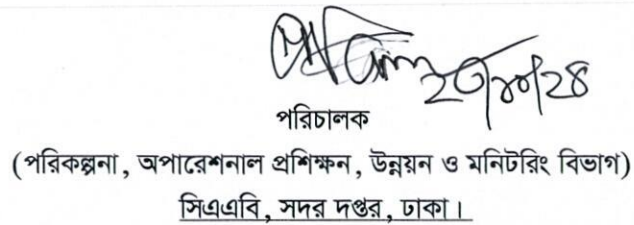 ২৩/১০/২৪
পরিচালক
(পরিকল্পনা, অপারেশনাল প্রশিক্ষন, উন্নয়ন ও মনিটরিং বিভাগ)
সিএএবি, সদর দপ্তর, ঢাকা।